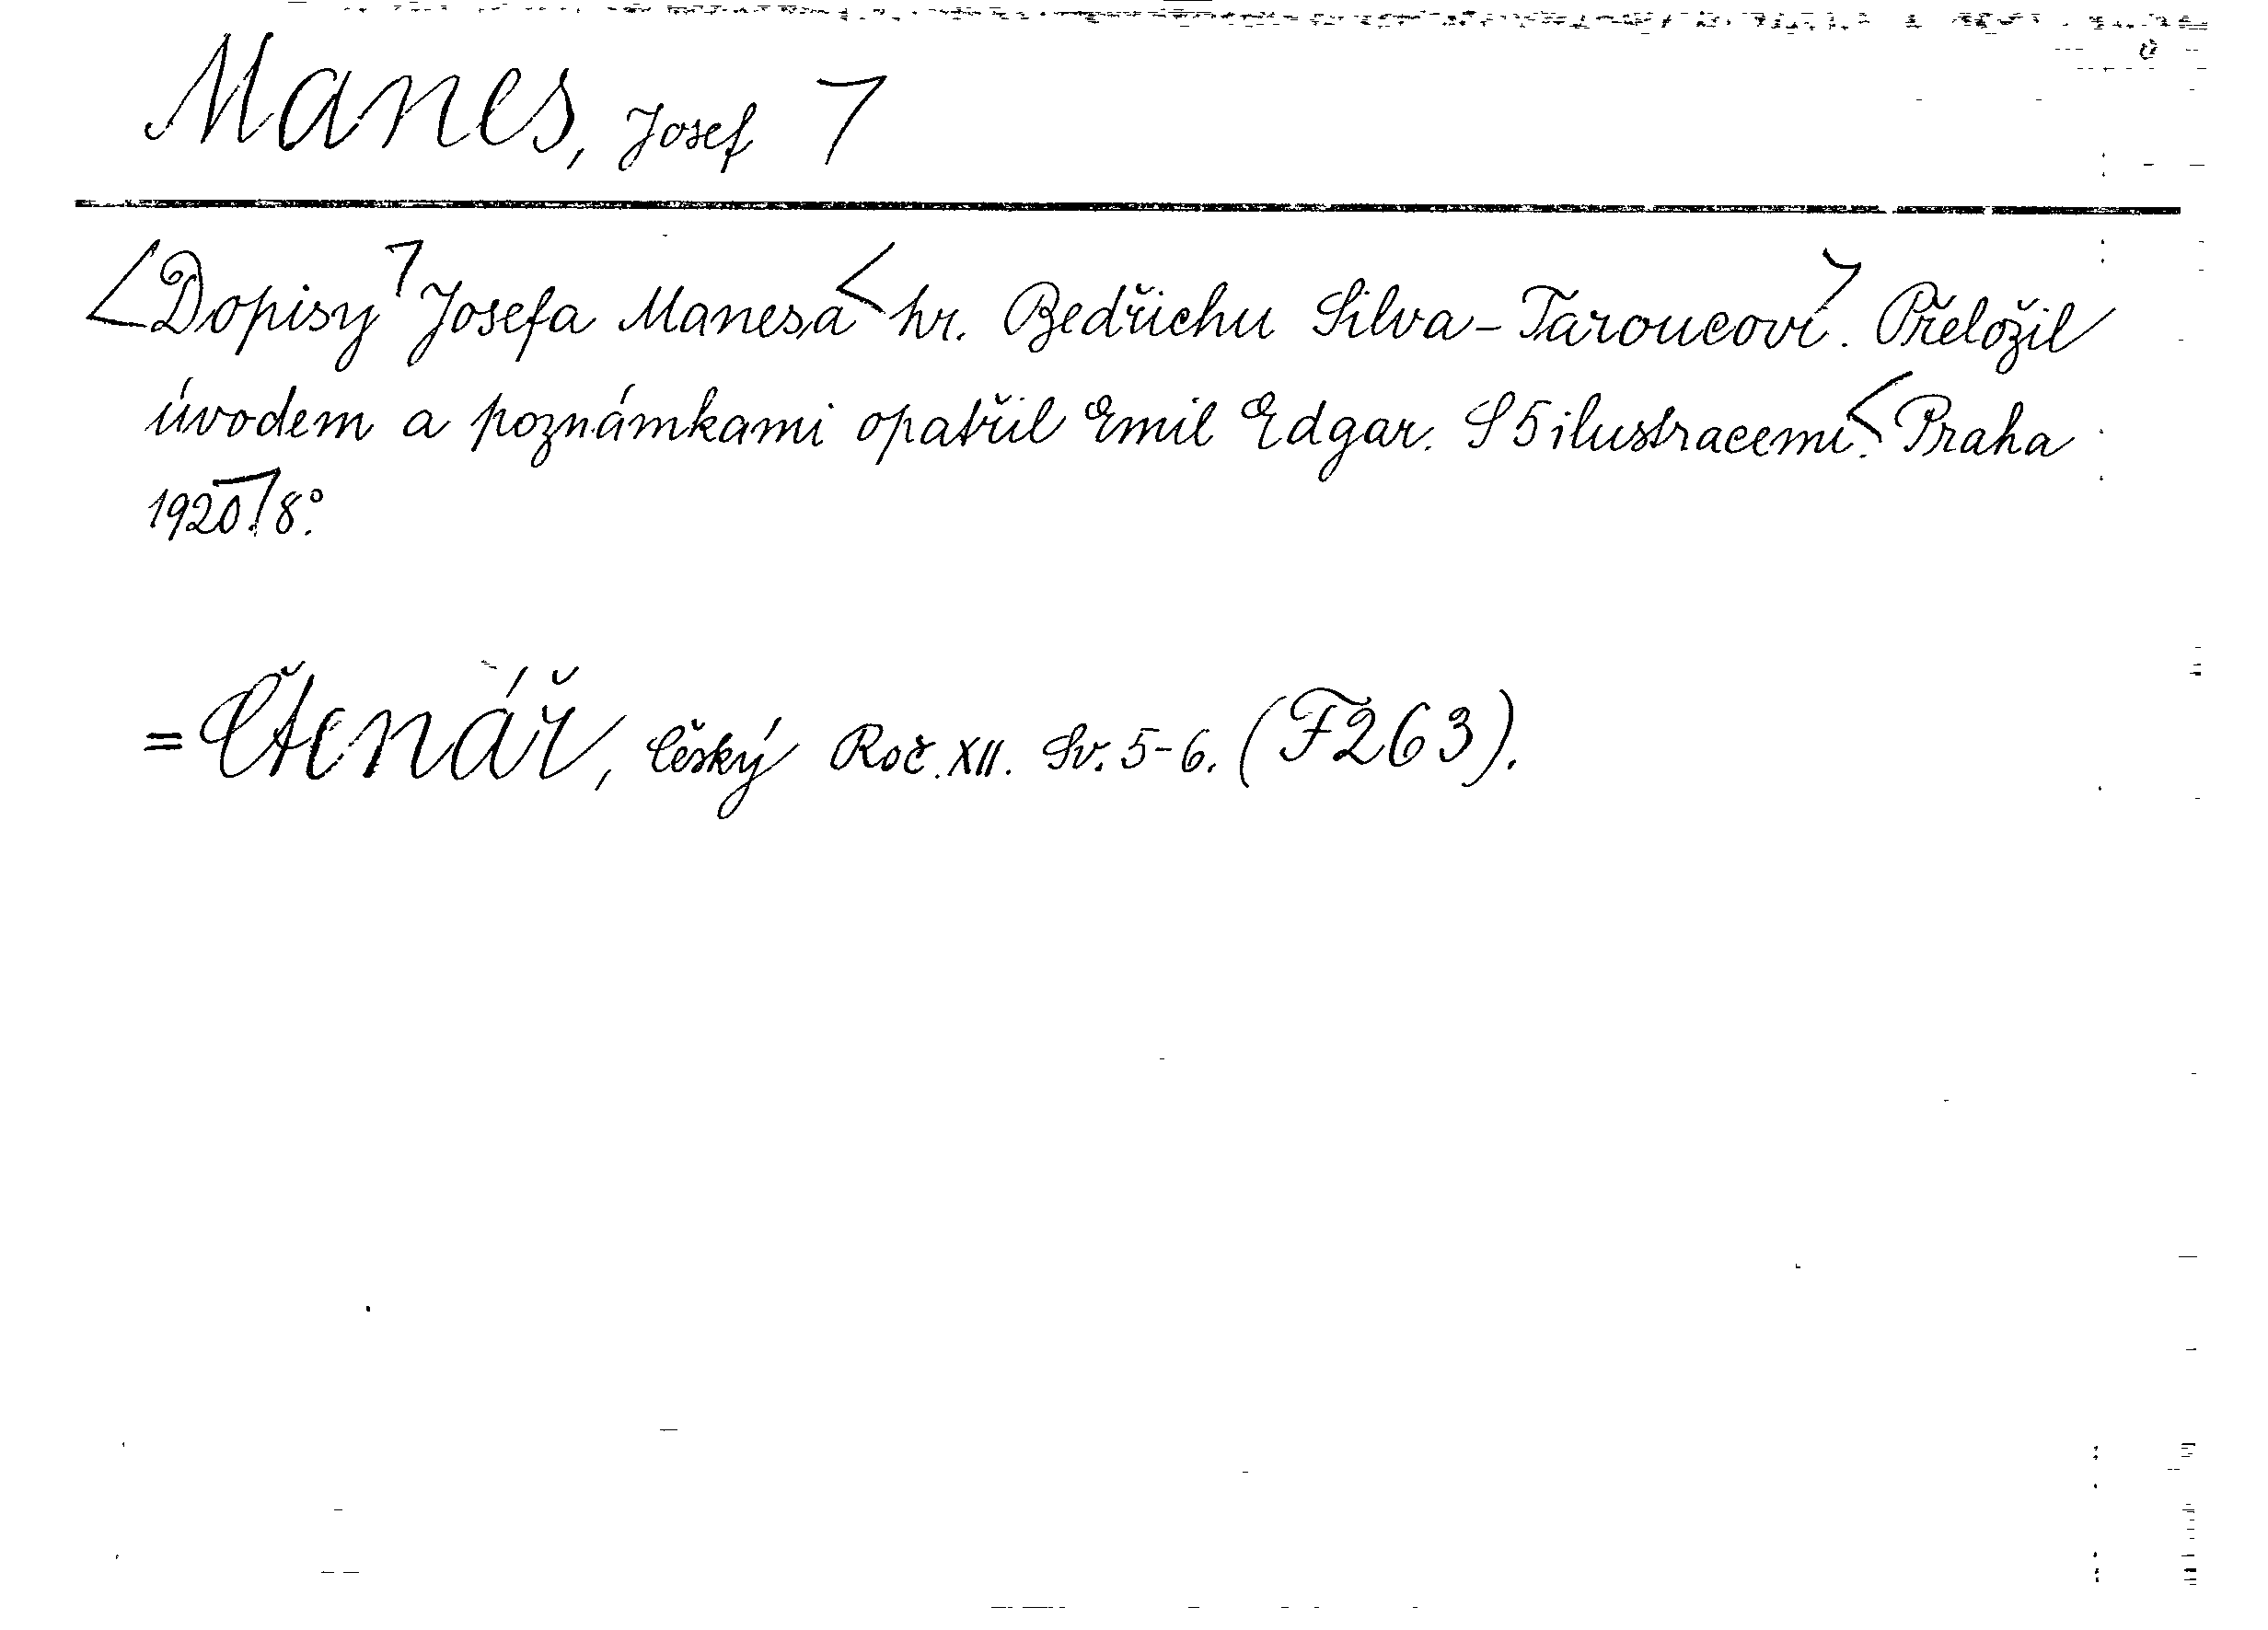 Manes, Josef
Dopisy Josefa Manesa hr. Bedřichu Silva-Taroucovi. Přeložil
úvodem a poznámkami opatřil Emil Edgar. S 5 ilustracemi. Praha
1920. 8°.
= Čtenář, Český Roč. XII. Sv. 5-6. (F263).